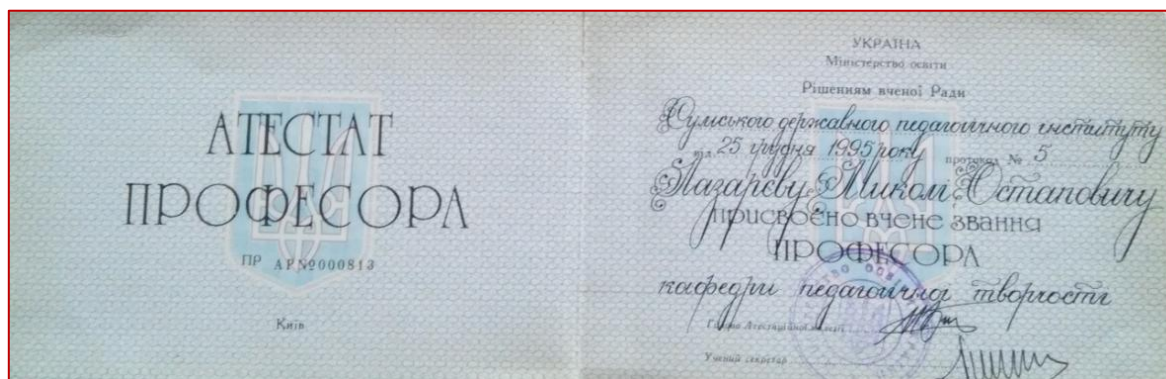 АТЕСТАТ
ПРОФЕСОРА
ПР АР №000813
Київ
УКРАЇНА
Міністерство освіти
Рішенням вченої Ради
Сумського державного педагогічного інституту
від 25 грудня 1995 року протокол № 5
Лазарєву Миколі Остаповичу
присвоєно вчене звання
ПРОФЕСОРА
кафедри педагогічної творчості
Голова Атестаційної колегії
Учений секретар